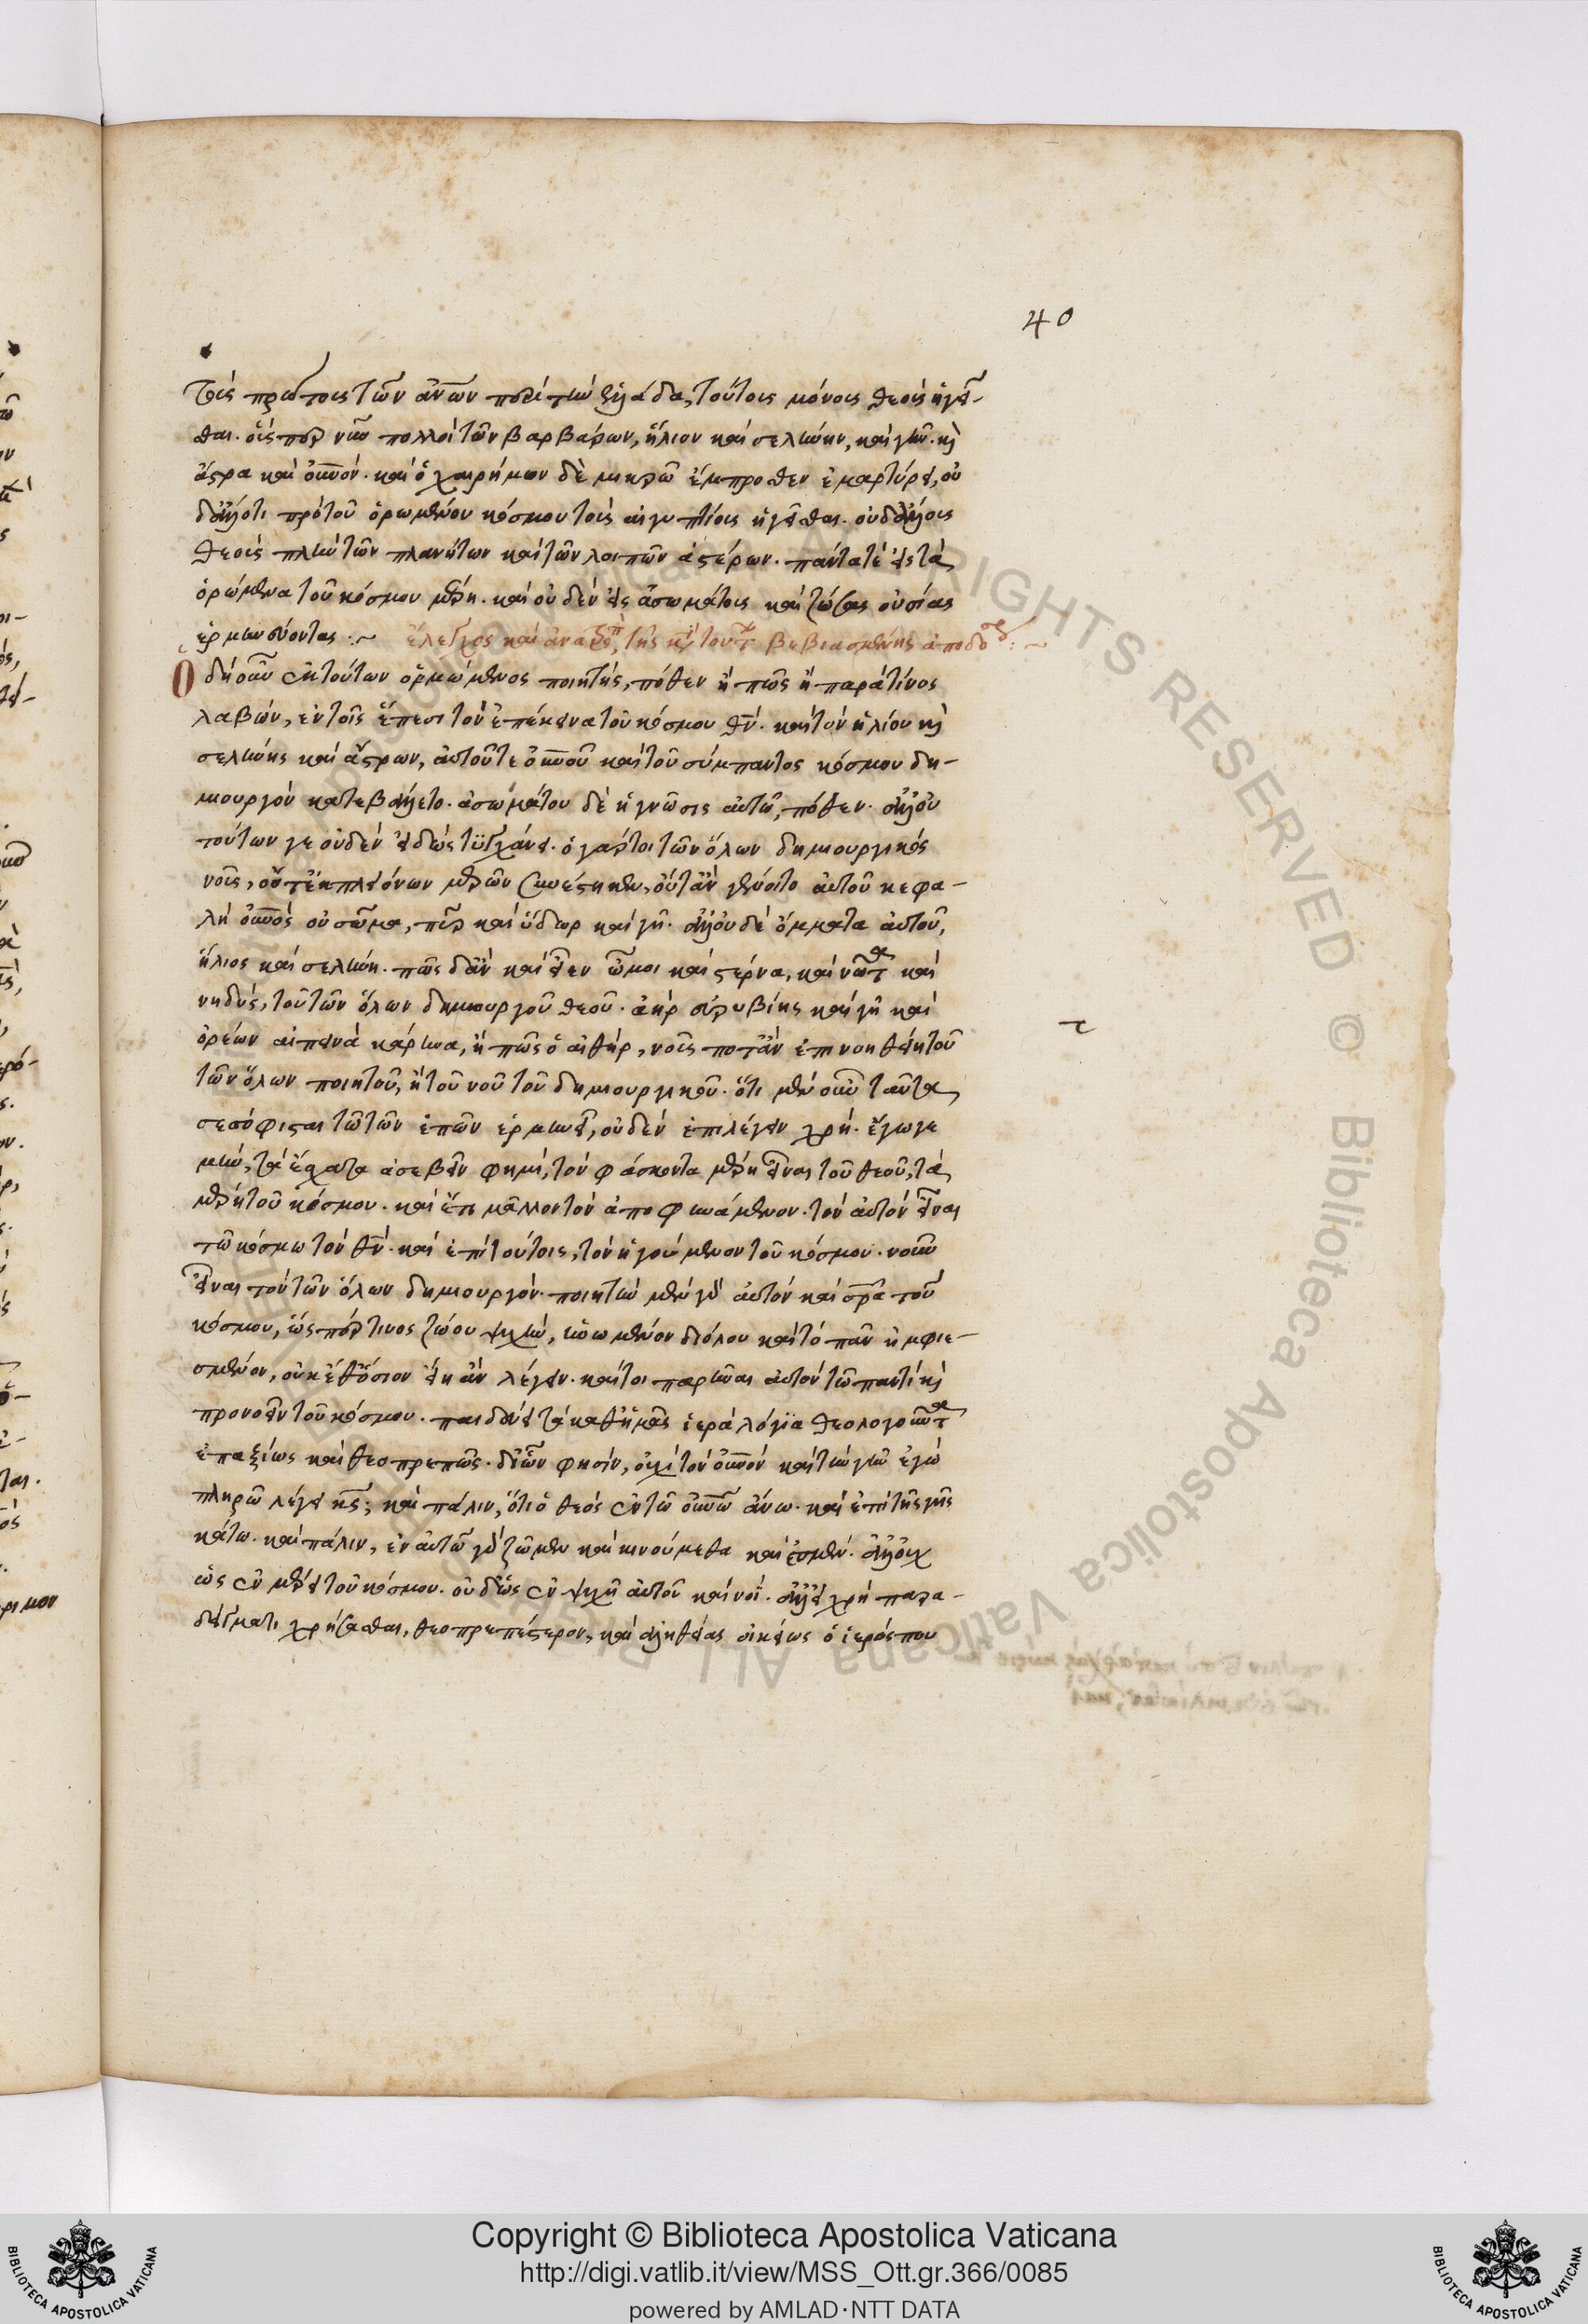 40
τοῖς πρώτοις τῶν ἀν̅ων περὶ τὴν ἑλλάδα, τούτοις μόνοις θεοῖς ἡγεῖ-
σθαι. οἷσπερ νῦν πολλοὶ τῶν βαρβάρων, ἥλιον καὶ σελήνην, καὶ γῆν. καὶ
ἄστρα καὶ οὐν̅όν. καὶ ὁ χαιρήμων δὲ μικρῶ ἔμπροσθεν ἐμαρτύρει, οὐ
δάλλο τι πρὸ τοῦ ὁρωμένου κόσμου τοὺς αἰγυπτίους ἡγεῖσθαι. οὐδ' ἄλλους
θεοὺς πλὴν τῶν πλανήτων καὶ τῶν λοιπῶν ἀστέρων. πάντα τὲ εἰς τὰ
ὁρώμενα τοῦ κόσμου μέρη. καὶ οὐδὲν εἰς ἀσωμάτους καὶ ζώσας οὐσίας
ἑρμηνεύοντας :~ ἔλεγχος καὶ ἀνασκευὴ τῆς κατὰ τούτων βεβιασμένης ἀποδόσεως :~
Ὁ δὴ οὖν ἐκ τούτων ὁρμώμενος ποιητής, πόθεν ἢ πῶς ἢ παρὰ τίνος
λαβών, ἐν τοῖς ἔπεσι τὸν ἐπέκεινα τοῦ κόσμου θν̅. καὶ τὸν ἡλίου καὶ
σελήνης καὶ ἄστρων, αὐτοῦ τε οὐν̅οῦ καὶ τοῦ σύμπαντος κόσμου δη-
μιουργὸν κατεβάλλετο. ἀσωμάτου δὲ ἡ γνῶσις αὐτῶ, πόθεν. ἀλλ' οὐ
τούτων γε οὐδὲν εἰδὼς τυγχάνει. ὁ γάρ τοι τῶν ὅλων δημιουργικὸς
νοῦς, οὔτ' ἐκ πλειόνων μερῶν συνέστηκεν, οὔτ' ἂν γένοιτο αὐτοῦ κεφα-
λὴ οὐν̅ός οὐ σῶμα, πῦρ καὶ ὕδωρ καὶ γῆ. ἀλλ' οὐδὲ ὄμματα αὐτοῦ,
ἥλιος καὶ σελήνη. πῶς δ' ἂν καὶ εἶεν ὦμοι καὶ στέρνα, καὶ νῶτα καὶ
νηδύς, τοῦ τῶν ὅλων δημιουργοῦ θεοῦ. ἀὴρ εὐρυβίης καὶ γῆ καὶ
ὀρέων αἰπεινὰ κάρηνα, ἢ πῶς ὁ αἰθήρ, νοῦς ποτ' ἂν ἐπινοηθείη τοῦ
τῶν ὅλων ποιητοῦ, ἢ τοῦ νοῦ τοῦ δημιουργικοῦ. ὅτι μὲν οὖν ταῦτα
σεσόφισται τῶ τῶν ἐπῶν ἑρμηνεῖ, οὐδὲν ἐπιλέγειν χρή. ἔγωγε
μὴν, τὰ ἔσχατα ἀσεβεῖν φημί, τὸν φάσκοντα μέρη εἶναι τοῦ θεοῦ, τὰ
μέρη τοῦ κόσμου. καὶ ἔτι μᾶλλον τὸν ἀποφηνάμενον. τὸν αὐτὸν εἶναι
τῶ κόσμω τὸν θν̅. καὶ ἐπὶ τούτοις, τὸν ἡγούμενον τοῦ κόσμου. νοῦν
εἶναι τὸν τῶν ὅλων δημιουργόν. ποιητὴν μὲν γὰρ αὐτὸν καὶ σρ̅α τοῦ
κόσμου, ὥσπερ τινος ζώου ψυχὴν, ἑνωμένον διόλου καὶ τὸ πᾶν ἠμφιε-
σμένον, οὐκ εὐθ' ὅσιον εἴη ἂν λέγειν. καί τοι παρεῖναι αὐτὸν τῶ παντὶ καὶ
προνοεῖν τοῦ κόσμου. παιδεύει τὰ καθ' ἡμᾶς ἱερὰ λόγϊα θεολογοῦντα
ἐπαξίως καὶ θεοπρεπῶς. δι' ὧν φησὶν, οὐχὶ τὸν οὐν̅όν καὶ τὴν γῆν ἐγὼ
πληρῶ λέγει κς̅; καὶ πάλιν, ὅτι ὁ θεὸς ἐν τῶ οὐν̅ῶ ἄνω. καὶ ἐπὶ τῆς γῆς
κάτω. καὶ πάλιν, ἐν αὐτῶ γὰρ ζῶμεν καὶ κινούμεθα καὶ ἐσμέν. ἀλλ' οὐχ
ὡς ἐν μέρει τοῦ κόσμου. οὐδ' ὡς ἐν ψυχῆ αὐτοῦ καὶ νοΐ. ἀλλ' εἰ χρὴ παρα-
δείγματι χρήσασθαι, θεοπρεπέστερον, καὶ ἀληθείας οἰκείως ὁ ἱερός που
Copyright © Biblioteca Apostolica Vaticana
http://digi.vatlib.it/view/MSS_Ott.gr.366/0085
powered by AMLAD·NTT DATA